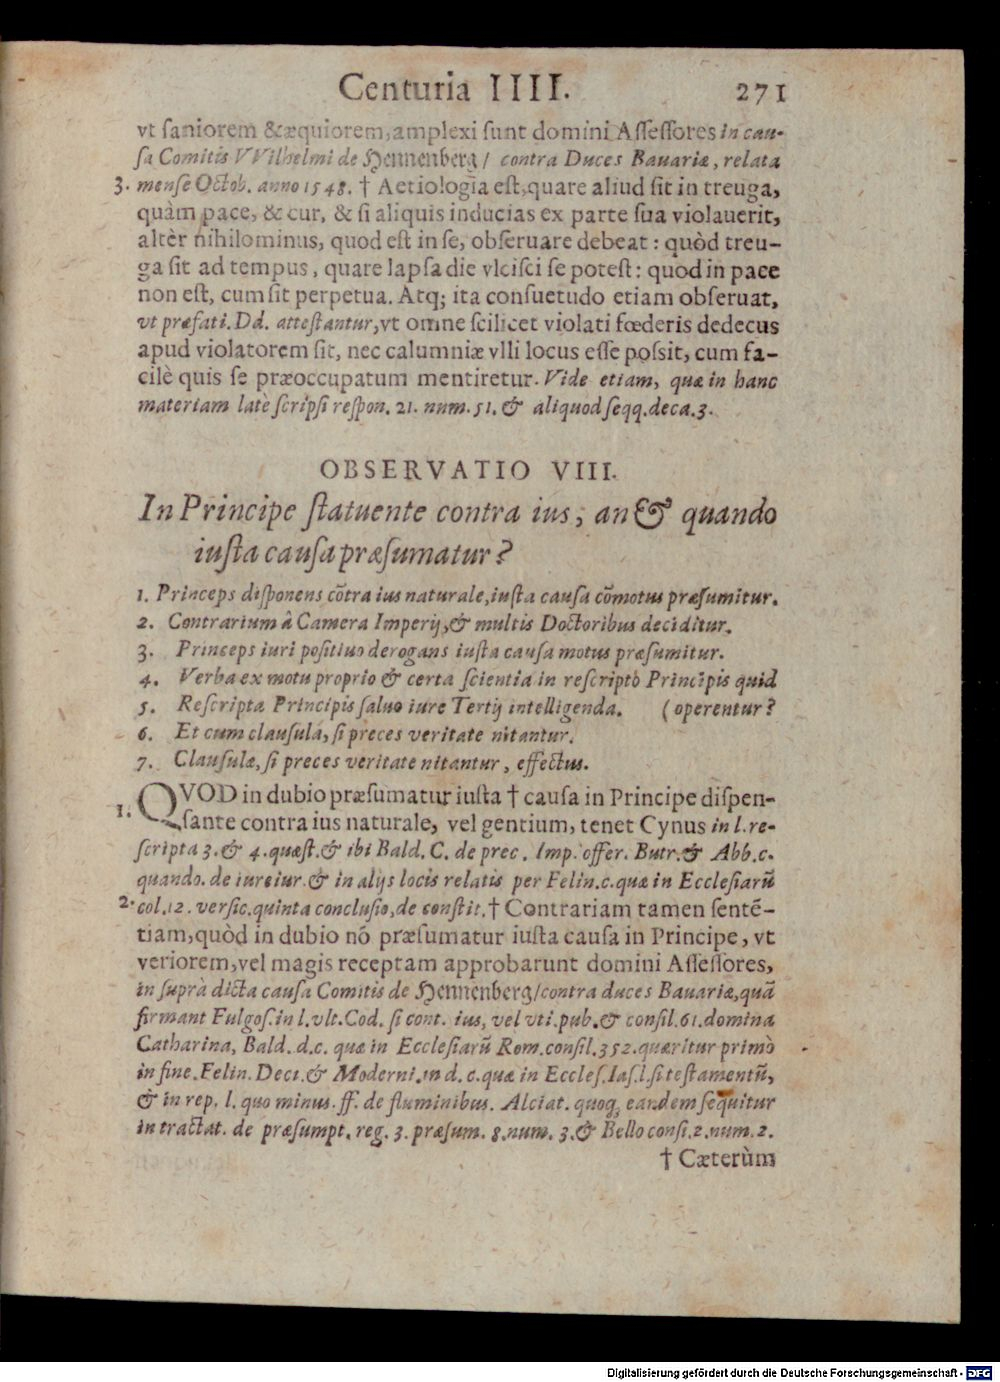 Centuria IIII. 271
vt ſaniorem &æquiorem, amplexi ſunt domini Aſſeſſores in cau-
ſa Comitis VVilhelmi de Hennenberg/ contra Duces Bauariæ, relata
3. menſe Octob. anno 1548. † Aetiologia eſt, quare aliud ſit in treuga,
quàm pace, & cur, & ſi aliquis inducias ex parte ſua violauerit,
altèr nihilominus, quod eſt in ſe, obſeruare debeat: quòd treu-
ga ſit ad tempus, quare lapſa die vlciſci ſe poteſt: quod in pace
non eſt, cum ſit perpetua. Atq; ita conſuetudo etiam obſeruat,
vt præfati. Dd. atteſtantur, vt omne ſcilicet violati fœderis dedecus
apud violatorem ſit, nec calumniæ vlli locus eſſe poſsit, cum fa-
cilè quis ſe præoccupatum mentiretur. Vide etiam, quæ in hanc
materiam latè ſcripſi reſpon. 21. num. 51. & aliquod ſeqq. deca. 3.
OBSERVATIO VIII.
In Principe ſtatuente contra ius, an & quando
iuſta cauſa præſumatur?
1. Princeps diſponens cõtra ius naturale, iuſta cauſa cõmotus præſumitur.
2. Contrarium â Camera Imperij, & multis Doctoribus deciditur.
3. Princeps iuri poſitiuo derogans iuſta cauſa motus præſumitur.
4. Verba ex motu proprio & certa ſcientia in reſcripto Principis quid
5. Reſcripta Principis ſaluo iure Tertij intelligenda. (operentur?
6. Et cum clauſula, ſi preces veritate nitantur.
7. Clauſulæ, ſi preces veritate nitantur, effectus.
1. QVOD in dubio præſumatur iuſta † cauſa in Principe diſpen-
ſante contra ius naturale, vel gentium, tenet Cynus in l. re-
ſcripta 3. & 4. quæſt. & ibi Bald. C. de prec. Imp. offer. Butr. & Abb. c.
quando. de iureiur. & in alijs locis relatis per Felin. c. quæ in Eccleſiarũ
2. col. 12. verſic. quinta concluſio, de conſtit. † Contrariam tamen ſentẽ-
tiam, quòd in dubio nõ præſumatur iuſta cauſa in Principe, vt
veriorem, vel magis receptam approbarunt domini Aſſeſſores,
in ſuprà dicta cauſa Comitis de Hennenberg/ contra duces Bauariæ, quã
firmant Fulgoſ. in l. vlt. Cod. ſi cont. ius, vel vti. pub. & conſil. 61. domina
Catharina, Bald. d. c. quæ in Eccleſiarũ Rom. conſil. 352. quæritur primò
in fine. Felin. Deci. & Moderni. in d. c. quæ in Eccleſ. Iaſ. l. ſi teſtamentũ,
& in rep. l. quo minus. ff. de fluminibus. Alciat. quoq; eandem ſequitur
in tractat. de præſumpt. reg. 3. præſum. 8. num. 3. & Bello conſi. 2. num. 2.
† Cæterùm
Digitalisierung gefördert durch die Deutsche Forschungsgemeinschaft - DFG